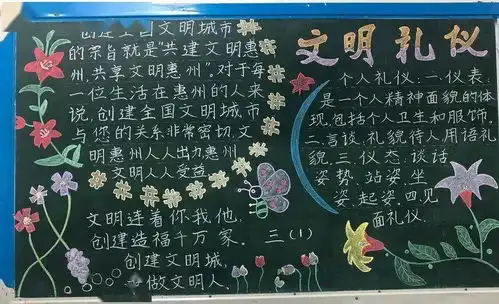 创建全国文明城市
的宗旨就是"共建文明惠
州,共享文明惠州"。对于每
一位生活在惠州的人来
说,创建全国文明城市
与您的关系非常密切,文
明惠州人人出力,惠州
文明人人受益
文明连着你我他,
创建造福千万家。
创建文明城,
做文明人、
三(1)
文明礼仪
个人礼仪:一.仪表
是一个人精神面貌的体
现,包括个人卫生和服饰。
二.言谈:礼貌待人,用语礼
貌.三.仪态:谈话
姿势、站姿、坐
姿、起姿.四.见
面礼仪.